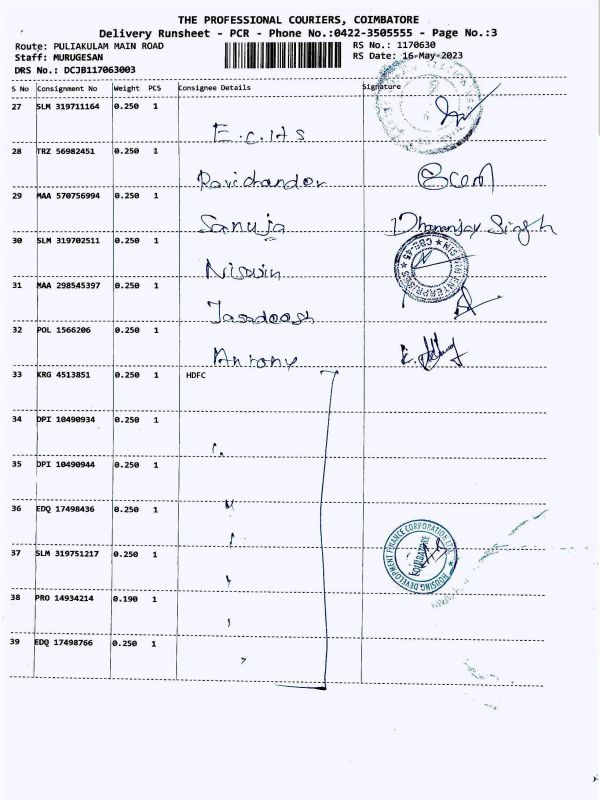 THE PROFESSIONAL COURIERS, COIMBATORE
Delivery Runsheet - PCR - Phone No.:0422-3505555 - Page No.:3
Route: PULIAKULAM MAIN ROAD RS No.: 1170630
Staff: MURUGESAN RS Date: 16-May-2023
DRS No.: DCJB117063003
S No Consignment No Weight PCS Consignee Details Signature
27 SLM 319711164 0.250 1
E.C.H.S
28 TRZ 56982451 0.250 1
Ravichandar
29 MAA 570756994 0.250 1
Sanuja Dhananjay Singh
30 SLM 319702511 0.250 1
ENTERPRISES CBE-45
31 MAA 298545397 0.250 1
32 POL 1566206 0.250 1
Antony
33 KRG 4513851 0.250 1 HDFC
34 DPI 10490934 0.250 1
35 DPI 10490944 0.250 1
36 EDQ 17498436 0.250 1
37 SLM 319751217 0.250 1
HOUSING DEVELOPMENT FINANCE CORPORATION LTD.
COIMBATORE
38 PRO 14934214 0.190 1
39 EDQ 17498766 0.250 1